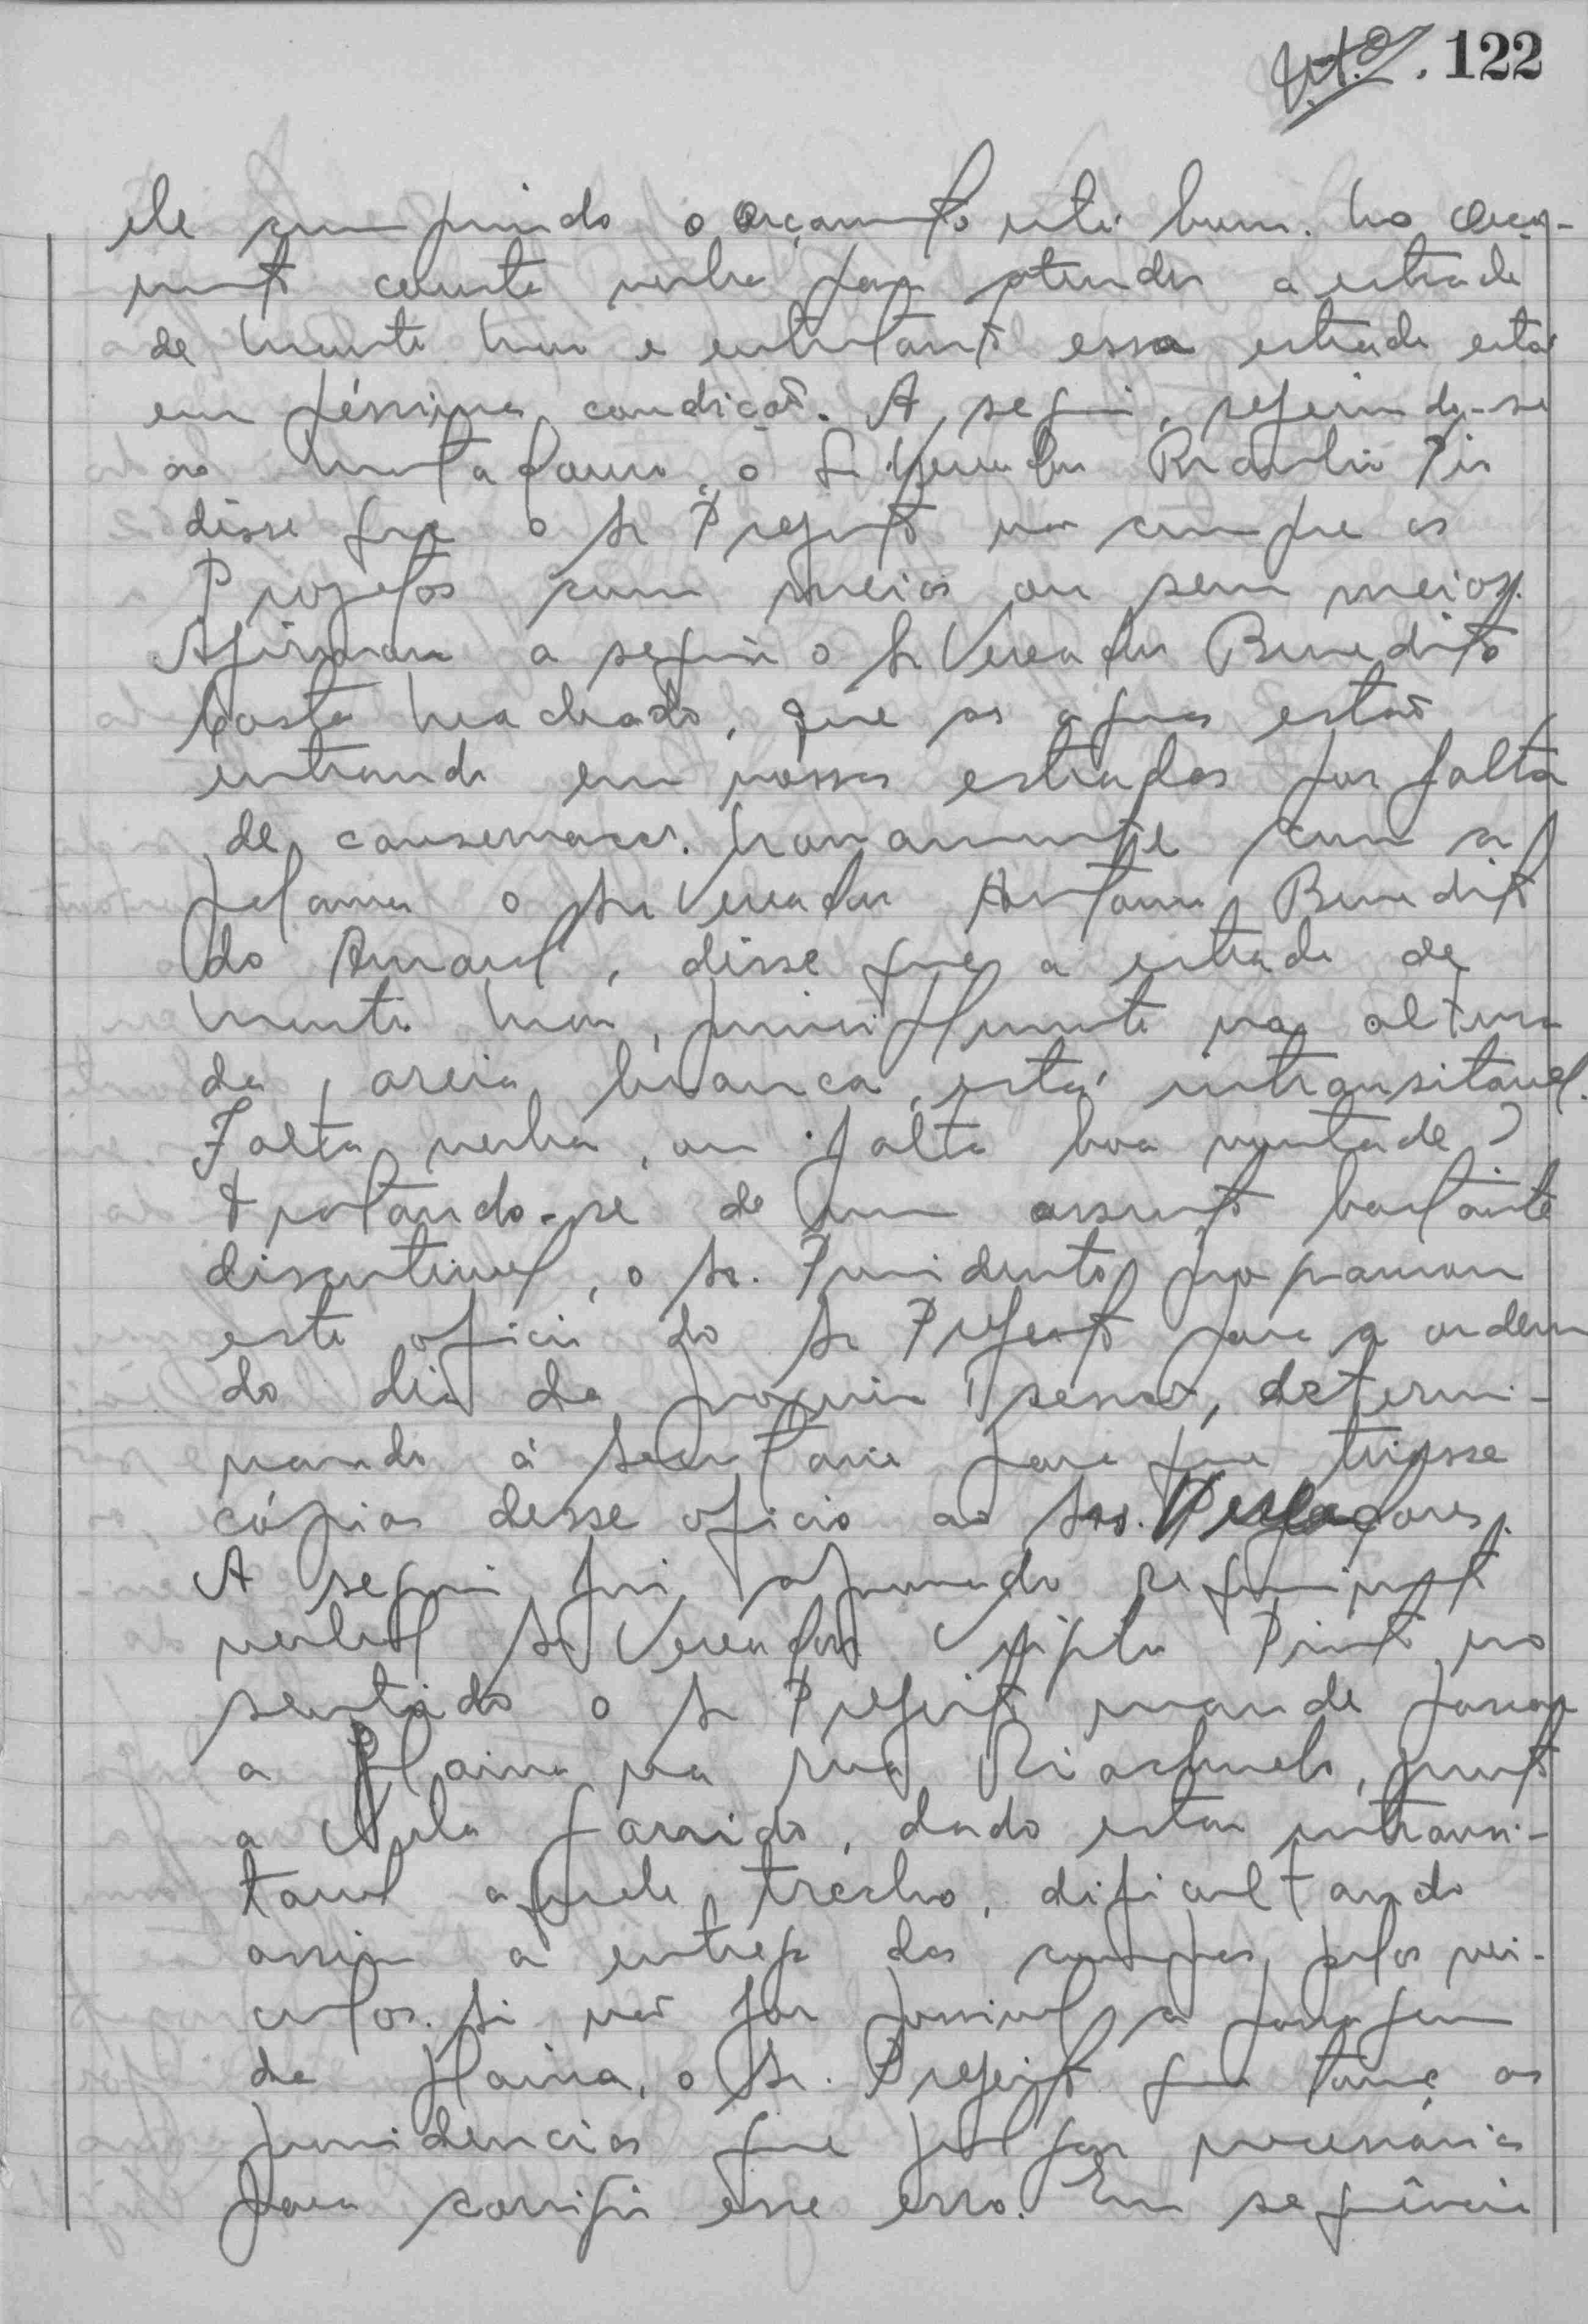 122
ele cumprindo o orçamento está bem. No orça-
mento consta verba para atender a estrada
de Monte Mor e entretanto essa estrada está
em péssima condição. A seguir, referindo-se
ao Matadouro, o Sr Vereador Braulio Pio
disse que o Sr Prefeito não cumpre os
Projetos com meios ou sem meios.
Afirmou a seguir o Sr Vereador Benedito
Costa Machado, que as aguas estão
entrando em nossas estradas por falta
de conservação. Novamente com a
palavra o Sr Vereador Antonio Benedito
do Amaral, disse que a estrada de
Monte Mor, principalmente na altura
da areia branca, está intransitavel.
Falta verba, ou falta boa vontade?
Tratando-se de um assunto bastante
discutivel, o Sr. Presidente programou
este oficio do Sr Prefeito para a ordem
do dia da proxima sessão, determi-
nando á Secretaria para que tirasse
cópias desse oficio aos Srs. Vereadores.
A seguir foi aprovado requerimento
verbal Sr Vereador Pinto no
sentido o Sr Prefeito mande passar
a Plaina na rua Riachuelo, junto
a Vila Garrido, dado estar intransi-
tavel aquele trecho, dificultando
assim a entrega das compras pelos vei-
culos. Si não for possivel a passagem
da Plaina, o Sr. Prefeito que tome as
providencias que julgar necessárias
para corrigir esse erro. Em sequência